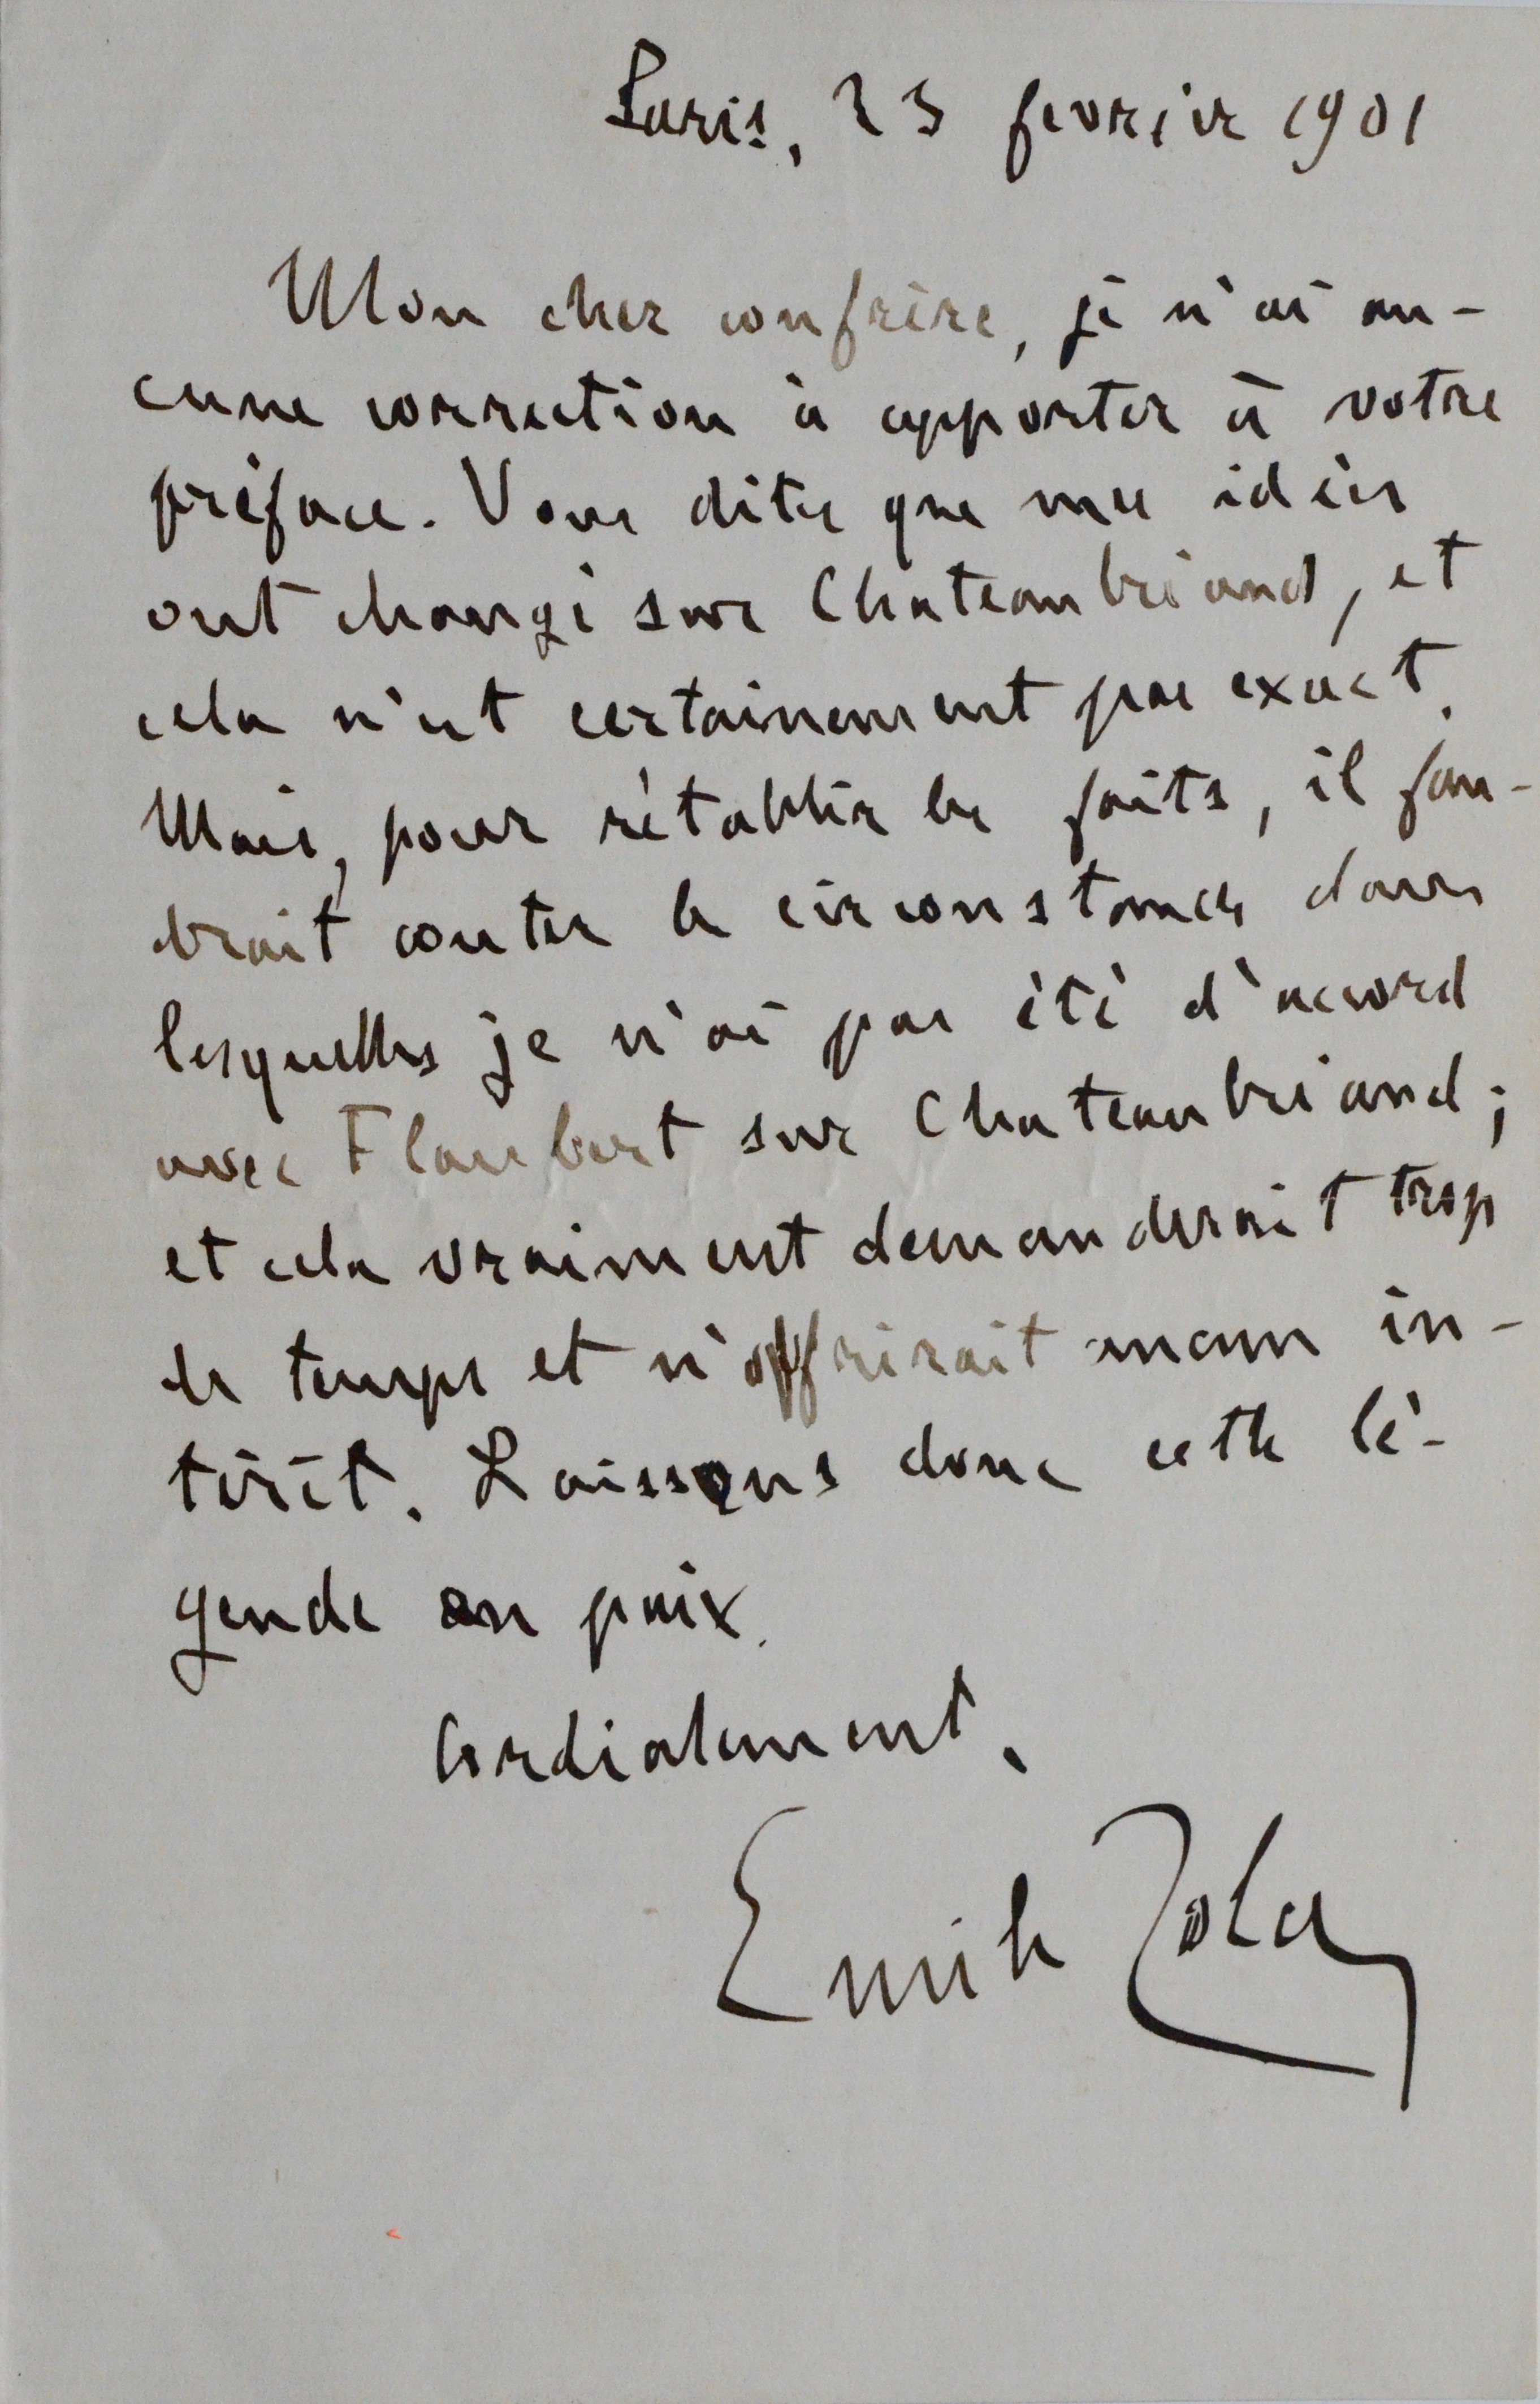 Paris, 23 fevrier 1901
Mon cher confrère, je n'ai au-
cune correction à apporter à votre
préface. Vous dites que mes idées
ont changé sur Chateaubriand, et
cela n'est certainement pas exact.
Mais, pour rétablir les faits, il fau-
drait conter les circonstances dans
lesquelles je n'ai pas été d'accord
avec Flaubert sur Chateaubriand;
et cela vraiment demanderait trop
de temps et n'offrirait aucun in-
térêt. Laissons donc cette lé-
gende en paix.
Cordialement,
Emile Zola